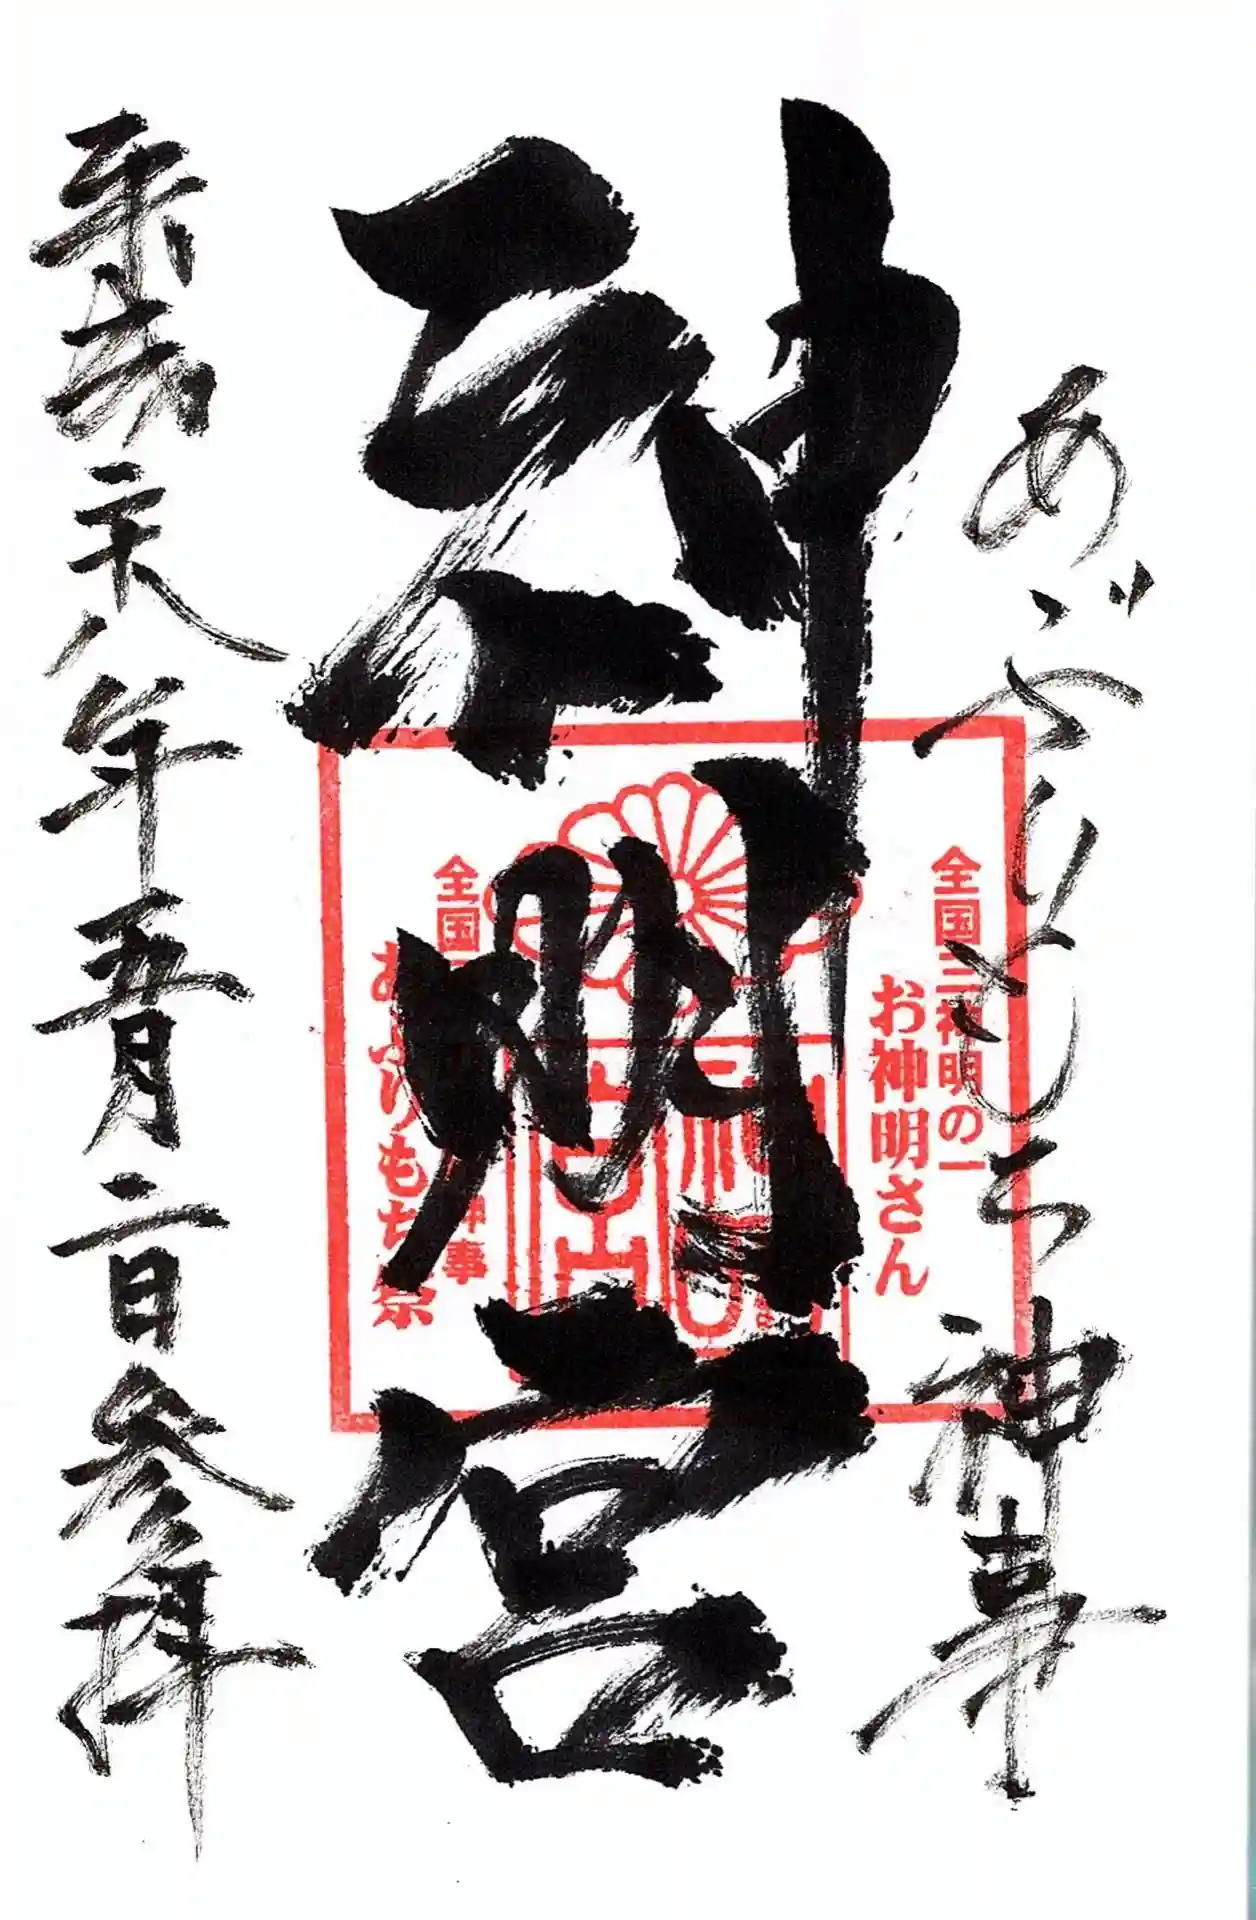 あぶりもち神事
神明宮
平成二十八年五月二日参拝
全国三神明の一
お神明さん
全国
神事
あぶりもち祭